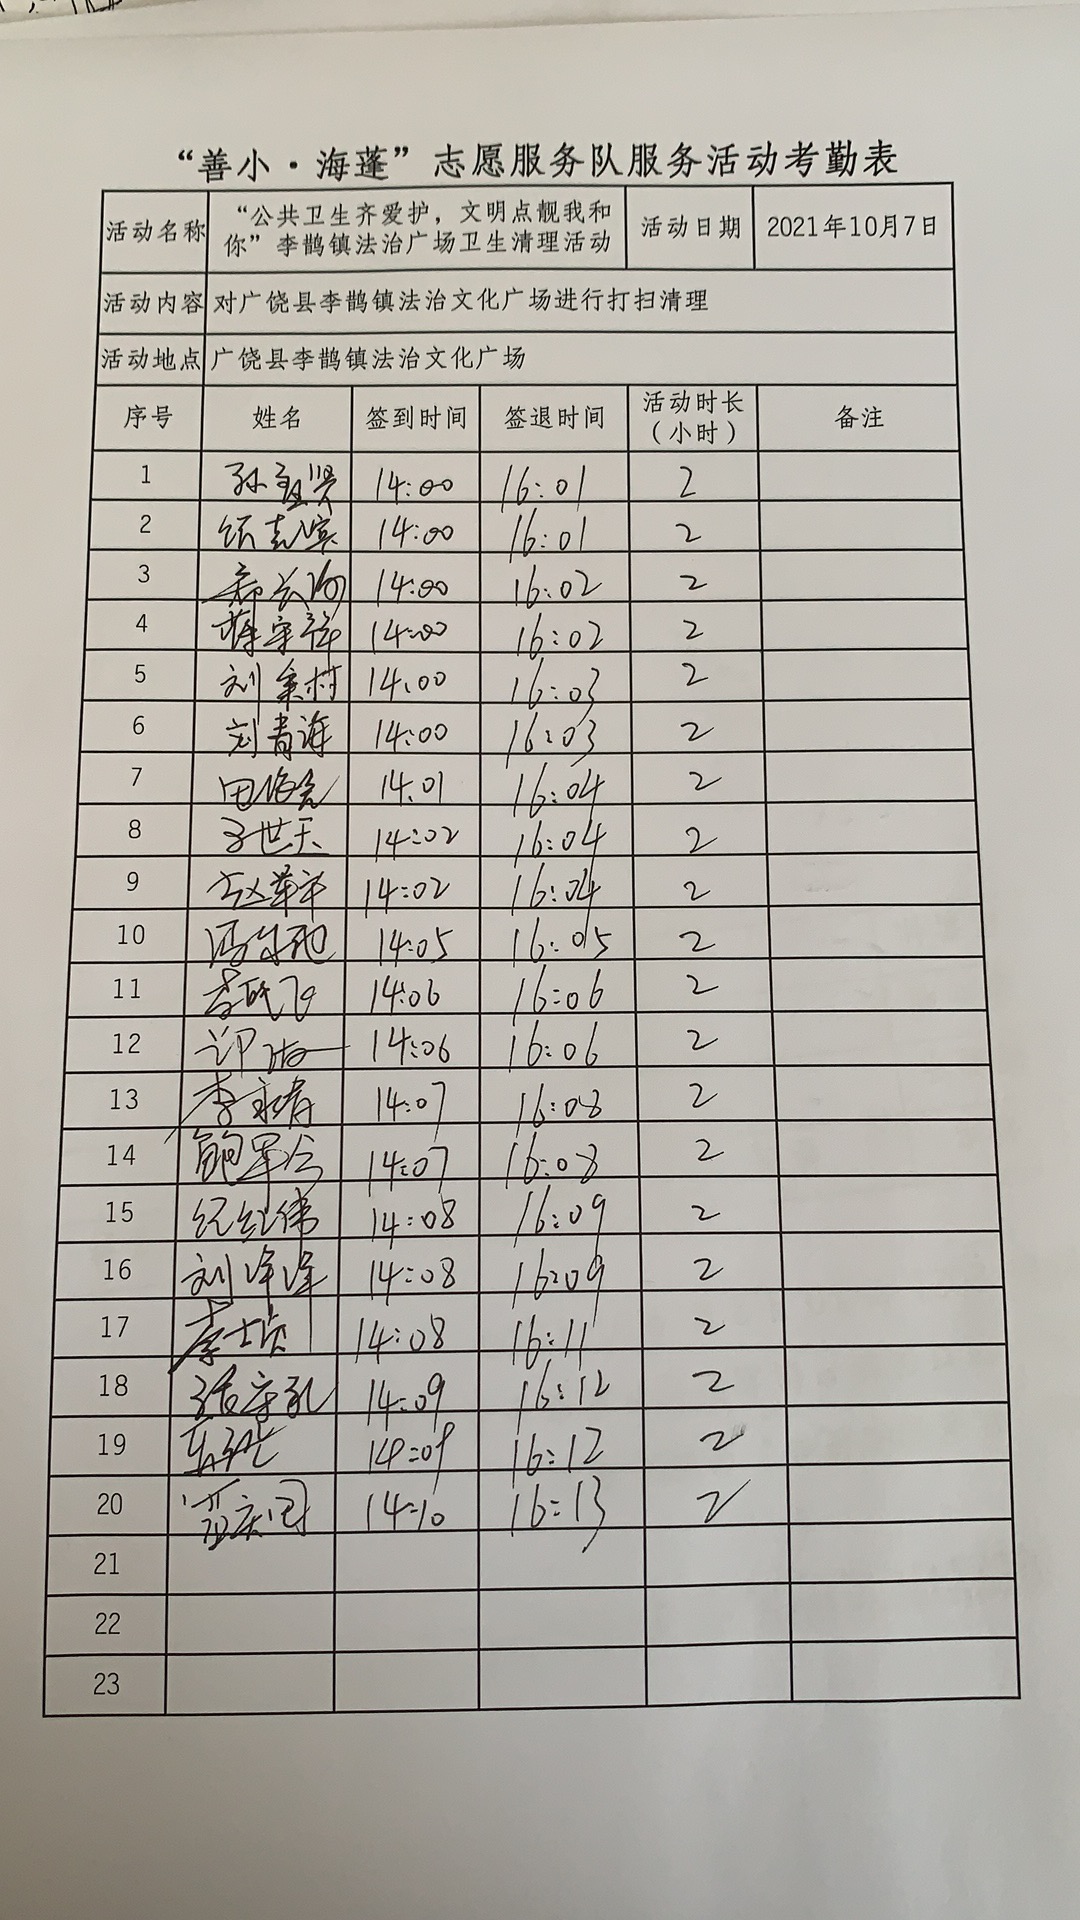 “善小·海蓬”志愿服务队服务活动考勤表
活动名称 “公共卫生齐爱护，文明点靓我和你”李鹊镇法治广场卫生清理活动 活动日期 2021年10月7日
活动内容 对广饶县李鹊镇法治文化广场进行打扫清理
活动地点 广饶县李鹊镇法治文化广场
序号 姓名 签到时间 签退时间 活动时长（小时） 备注
1 14:00 16:01 2
2 14:00 16:01 2
3 14:00 16:02 2
4 14:00 16:02 2
5 刘 14:00 16:03 2
6 刘青 14:00 16:03 2
7 田 14:01 16:04 2
8 14:02 16:04 2
9 赵 14:02 16:04 2
10 14:05 16:05 2
11 李 14:06 16:06 2
12 14:06 16:06 2
13 李 14:07 16:08 2
14 14:07 16:08 2
15 纪红伟 14:08 16:09 2
16 刘 14:08 16:09 2
17 14:08 16:11 2
18 14:09 16:12 2
19 14:09 16:12 2
20 14:10 16:13 2
21
22
23